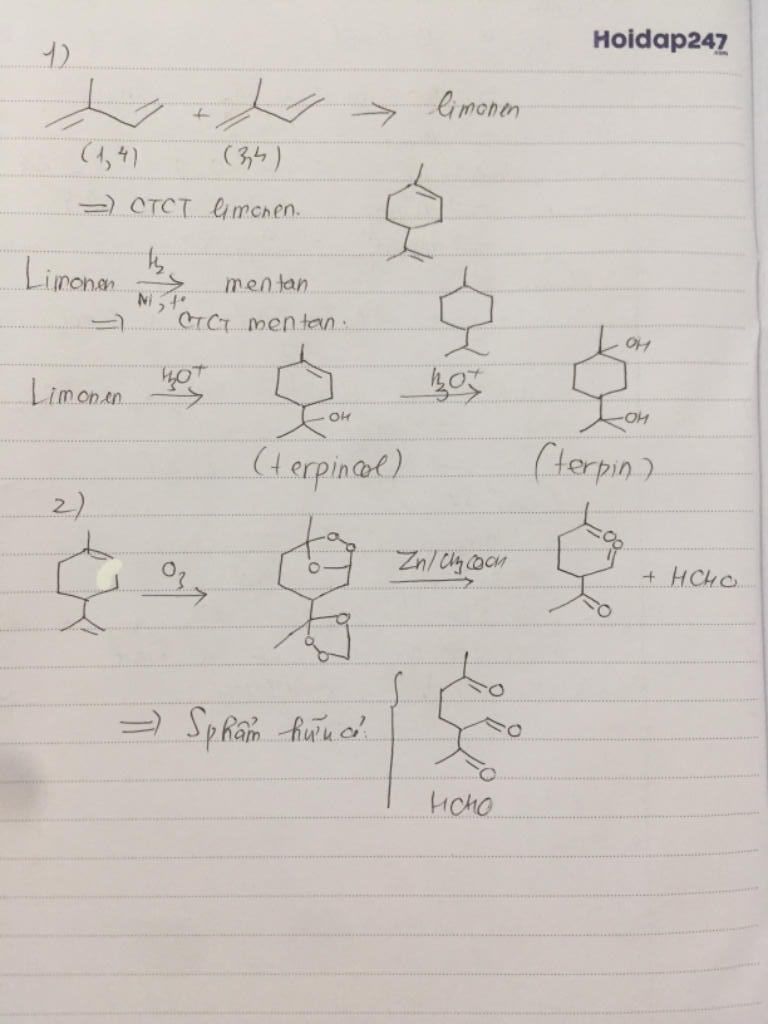 Hoidap247
.com
1)
+ → limonen
(1,4) (3,4)
=> CTCT limonen.
Limonen H2 Ni, t° mentan
=> CTCT mentan.
Limonen H3O+ OH H3O+ OH OH
(terpincol) (terpin)
2)
O3 O O O O O O Zn/CH3COOH O O O + HCHO
=> Sphẩm hữu cơ: O O O
HCHO